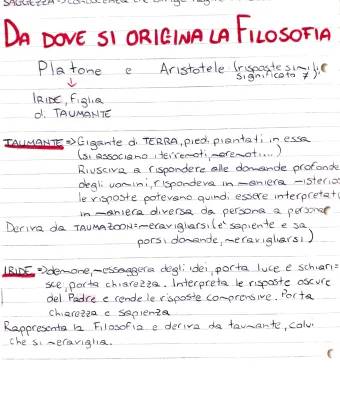 DA DOVE SI ORIGINA LA FILOSOFIA
Platone e Aristotele (risposte simili,
significato ≠)
↓
IRIDE, Figlia
di TAUMANTE
TAUMANTE => Gigante di TERRA, piedi piantati in essa
(si associano i terremoti, maremoti...)
Riusciva a rispondere alle domande profonde
degli uomini, rispondeva in maniera misterio
le risposte potevano quindi essere interpretat
in maniera diversa da persona a persona
Deriva da TAUMAZOON = meravigliarsi (è sapiente e sa
porsi domande, meravigliarsi)
IRIDE => demone, messaggera degli dei, porta luce e schiari=
sce, porta chiarezza. Interpreta le risposte oscure
del Padre e rende le risposte comprensive. Porta
chiarezza e sapienza
Rappresenta la Filosofia e deriva da taumante, colui
che si meraviglia.